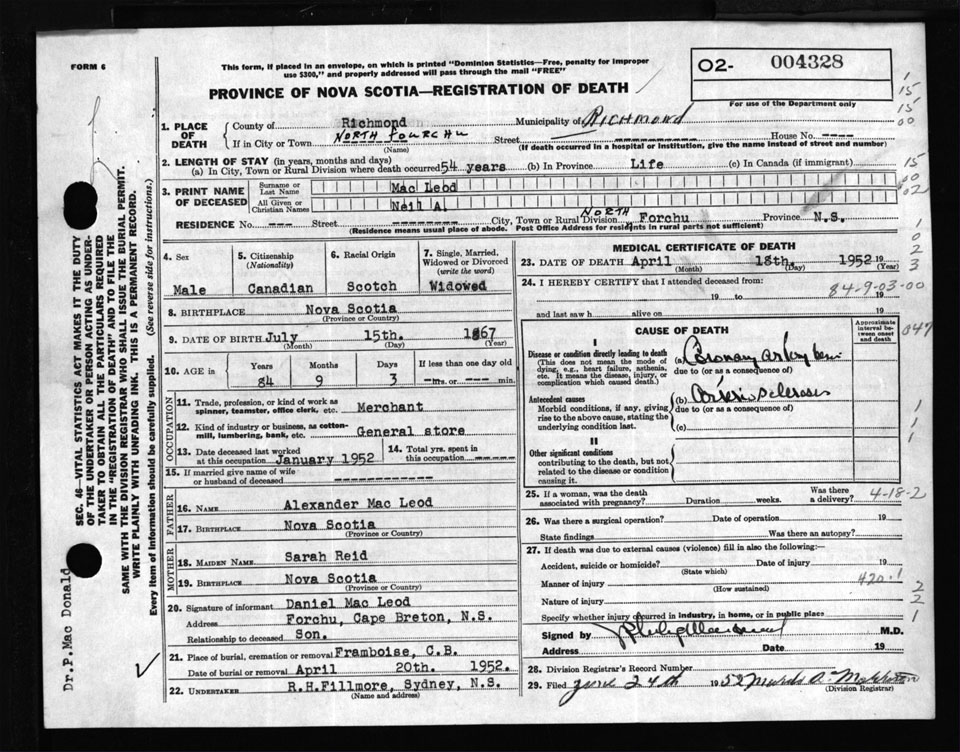 FORM 6
This form, if placed in an envelope, on which is printed "Dominion Statistics—Free, penalty for improper
use $300," and properly addressed will pass through the mail "FREE"
O2- 004328
For use of the Department only
PROVINCE OF NOVA SCOTIA—REGISTRATION OF DEATH
1. PLACE OF DEATH
County of Richmond Municipality of Richmond
If in City or Town NORTH FOURCHU Street ---------- House No. ----
(Name) (If death occurred in a hospital or institution, give the name instead of street and number)
2. LENGTH OF STAY (in years, months and days)
(a) In City, Town or Rural Division where death occurred 54 years (b) In Province Life (c) In Canada (if immigrant)
3. PRINT NAME OF DECEASED
Surname or Last Name Mac Leod
All Given or Christian Names Neil A.
RESIDENCE No. --- Street -------- City, Town or Rural Division NORTH Forchu Province N.S.
(Residence means usual place of abode. Post Office Address for residents in rural parts not sufficient)
4. Sex
Male
5. Citizenship
(Nationality)
Canadian
6. Racial Origin
Scotch
7. Single, Married, Widowed or Divorced
(write the word)
Widowed
8. BIRTHPLACE Nova Scotia
(Province or Country)
9. DATE OF BIRTH July 15th. 1867
(Month) (Day) (Year)
10. AGE in
Years Months Days If less than one day old
84 9 3 --- hrs. or --- min.
OCCUPATION
11. Trade, profession, or kind of work as
spinner, teamster, office clerk, etc. Merchant
12. Kind of industry or business, as cotton-
mill, lumbering, bank, etc. General store
13. Date deceased last worked
at this occupation January 1952
14. Total yrs. spent in
this occupation -----
15. If married give name of wife
or husband of deceased ------------
FATHER
16. NAME Alexander Mac Leod
17. BIRTHPLACE Nova Scotia
(Province or Country)
MOTHER
18. MAIDEN NAME Sarah Reid
19. BIRTHPLACE Nova Scotia
(Province or Country)
20. Signature of informant Daniel Mac Leod
Address Forchu, Cape Breton, N.S.
Relationship to deceased Son.
21. Place of burial, cremation or removal Framboise, C.B.
Date of burial or removal April 20th. 1952.
22. UNDERTAKER R.H.Fillmore, Sydney, N.S.
MEDICAL CERTIFICATE OF DEATH
23. DATE OF DEATH April 18th. 1952 19
(Month) (Day) (Year)
24. I HEREBY CERTIFY that I attended deceased from:
84-9-03-00
19 to 19
and last saw h alive on 19
CAUSE OF DEATH
Approximate interval between onset and death
I
Disease or condition directly leading to death
(This does not mean the mode of
dying, e.g., heart failure, asthenia,
etc. It means the disease, injury, or
complication which caused death.)
(a) Coronary
due to (or as a consequence of)
Antecedent causes
Morbid conditions, if any, giving
rise to the above cause, stating the
underlying condition last.
(b) Arterio Sclerosis
due to (or as a consequence of)
(c)
II
Other significant conditions
contributing to the death, but not
related to the disease or condition
causing it.
25. If a woman, was the death
associated with pregnancy? Duration weeks. Was there
a delivery? 4-18-2
26. Was there a surgical operation? Date of operation 19
State findings Was there an autopsy?
27. If death was due to external causes (violence) fill in also the following:—
Accident, suicide or homicide? Date of injury 19
(State which)
Manner of injury 420.1
(How sustained)
Nature of injury
Specify whether injury occurred in industry, in home, or in public place
Signed by M.D.
Address Date 19
28. Division Registrar's Record Number
29. Filed June 24th 1952
(Division Registrar)
SEC. 46—VITAL STATISTICS ACT MAKES IT THE DUTY
OF THE UNDERTAKER OR PERSON ACTING AS UNDER-
TAKER TO OBTAIN ALL THE PARTICULARS REQUIRED
IN THE "REGISTRATION OF DEATH" AND TO FILE THE
SAME WITH THE DIVISION REGISTRAR WHO SHALL ISSUE THE BURIAL PERMIT.
WRITE PLAINLY WITH UNFADING INK. THIS IS A PERMANENT RECORD.
Every item of information should be carefully supplied. (See reverse side for instructions.)
Dr.P.Mac Donald
1
15
15
00
15
00
02
1
0
2
3
047
1
1
1
2
2
1